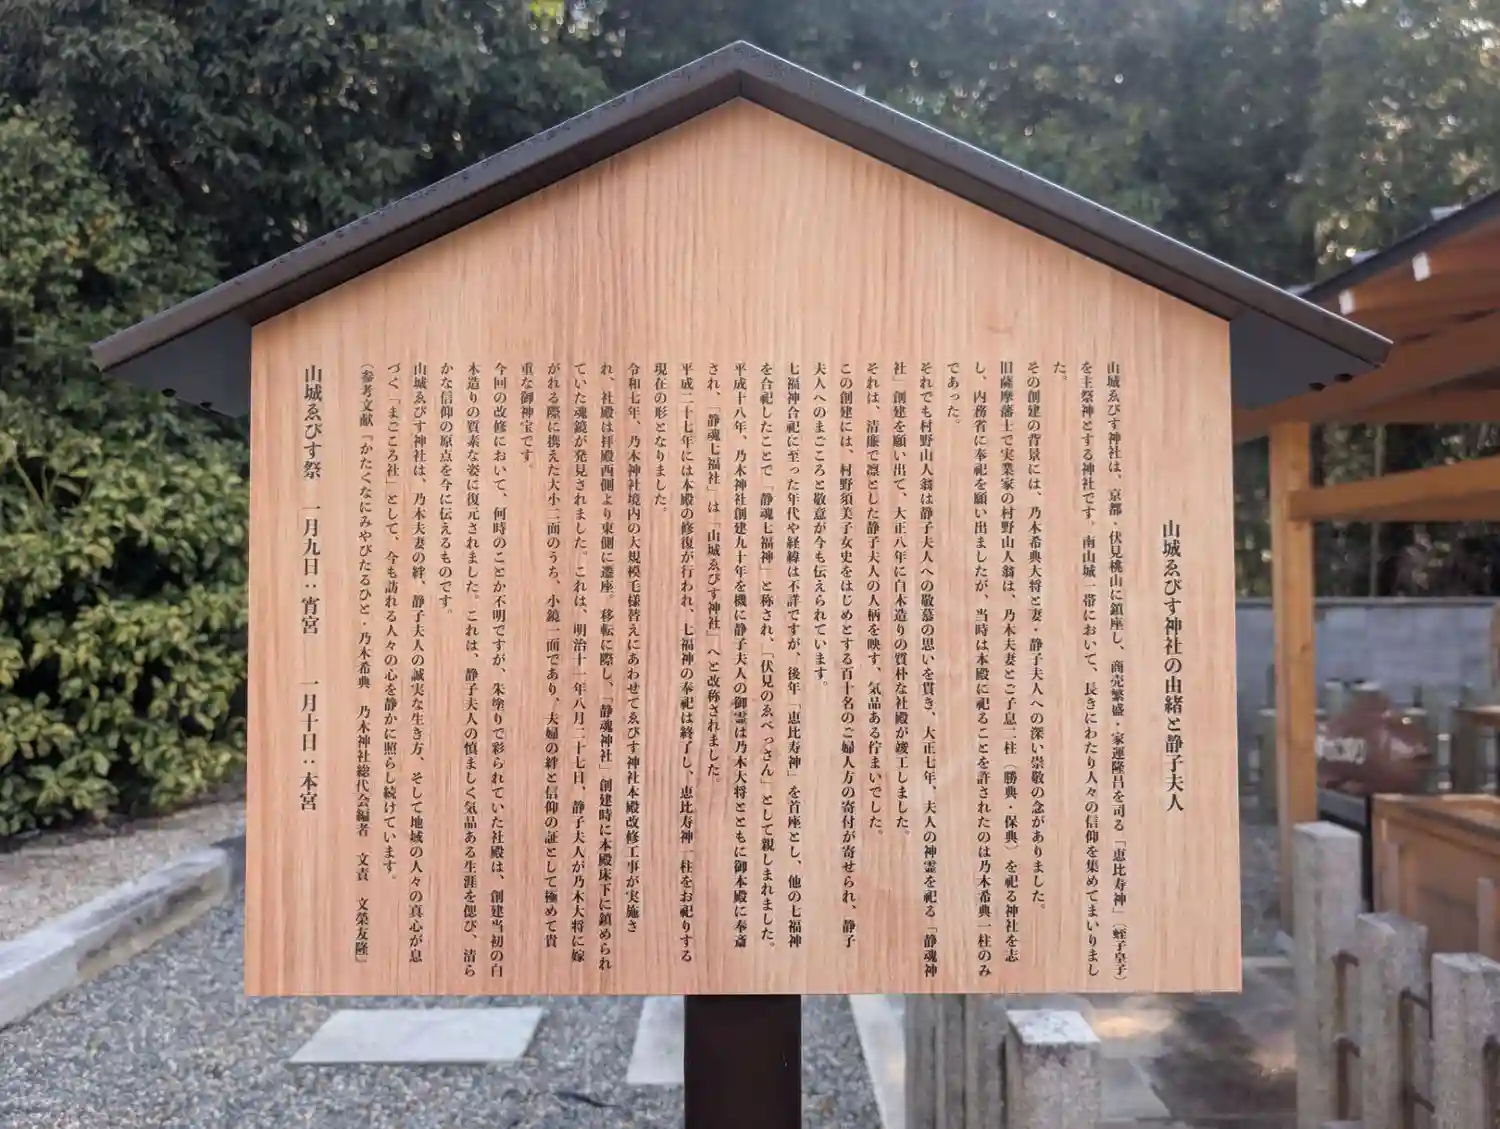 山城ゑびす神社の由緒と静子夫人
山城ゑびす神社は、京都・伏見桃山に鎮座し、商売繁盛・家運隆昌を司る「恵比寿神」（蛭子皇子）
を主祭神とする神社です。南山城一帯において、長きにわたり人々の信仰を集めてまいりまし
た。
その創建の背景には、乃木希典大将と妻・静子夫人への深い崇敬の念がありました。
旧薩摩藩士で実業家の村野山人翁は、乃木夫妻とご子息二柱（勝典・保典）を祀る神社を志
し、内務省に奉祀を願い出ましたが、当時は本殿に祀ることを許されたのは乃木希典一柱のみ
であった。
それでも村野山人翁は静子夫人への敬慕の思いを貫き、大正七年、夫人の神霊を祀る「静魂神
社」創建を願い出て、大正八年に白木造りの質朴な社殿が竣工しました。
それは、清廉で凛とした静子夫人の人柄を映す、気品ある佇まいでした。
この創建には、村野須美子女史をはじめとする百十名のご婦人方の寄付が寄せられ、静子
夫人へのまごころと敬意が今も伝えられています。
七福神合祀に至った年代や経緯は不詳ですが、後年「恵比寿神」を首座とし、他の七福神
を合祀したことで「静魂七福神」と称され、「伏見のゑべっさん」として親しまれました。
平成十八年、乃木神社創建九十年を機に静子夫人の御霊は乃木大将とともに御本殿に奉斎
され、「静魂七福社」は「山城ゑびす神社」へと改称されました。
平成二十七年には本殿の修復が行われ、七福神の奉祀は終了し、恵比寿神一柱をお祀りする
現在の形となりました。
令和七年、乃木神社境内の大規模毛様替えにあわせてゑびす神社本殿改修工事が実施さ
れ、社殿は拝殿西側より東側に遷座。移転に際し、「静魂神社」創建時に本殿床下に鎮められ
ていた魂鏡が発見されました。これは、明治十一年八月二十七日、静子夫人が乃木大将に嫁
がれる際に携えた大小二面のうち、小鏡一面であり、夫婦の絆と信仰の証として極めて貴
重な御神宝です。
今回の改修において、何時のことか不明ですが、朱塗りで彩られていた社殿は、創建当初の白
木造りの質素な姿に復元されました。これは、静子夫人の慎ましく気品ある生涯を偲び、清ら
かな信仰の原点を今に伝えるものです。
山城ゑびす神社は、乃木夫妻の絆、静子夫人の誠実な生き方、そして地域の人々の真心が息
づく「まごころ社」として、今も訪れる人々の心を静かに照らし続けています。
（参考文献『かたくなにみやびたるひと・乃木希典　乃木神社総代会編者　文責　文榮友隆』
山城ゑびす祭　一月九日：宵宮　一月十日：本宮